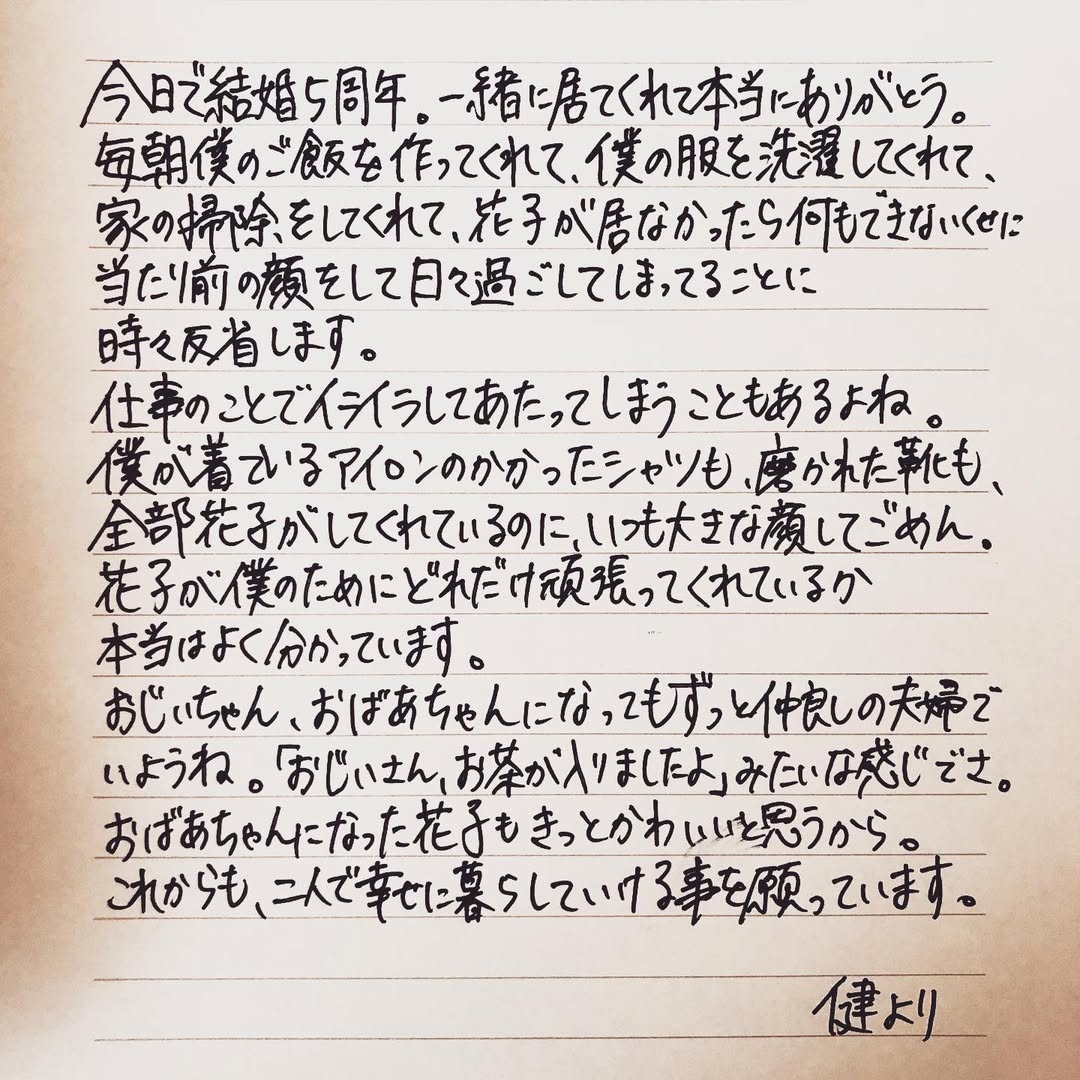 今日で結婚5周年。一緒に居てくれて本当にありがとう。
毎朝僕のご飯を作ってくれて、僕の服を洗濯してくれて、
家の掃除をしてくれて、花子が居なかったら何もできないくせに
当たり前の顔をして日々過ごしてしまってることに
時々反省します。
仕事のことでイライラしてあたってしまうこともあるよね。
僕が着ているアイロンのかかったシャツも、磨かれた靴も、
全部花子がしてくれているのに、いつも大きな顔してごめん。
花子が僕のためにどれだけ頑張ってくれているか
本当はよく分かっています。
おじいちゃん、おばあちゃんになってもずっと仲良しの夫婦で
いようね。「おじいさん、お茶が入りましたよ」みたいな感じでさ。
おばあちゃんになった花子もきっとかわいいと思うから。
これからも、二人で幸せに暮らしていける事を願っています。
健より